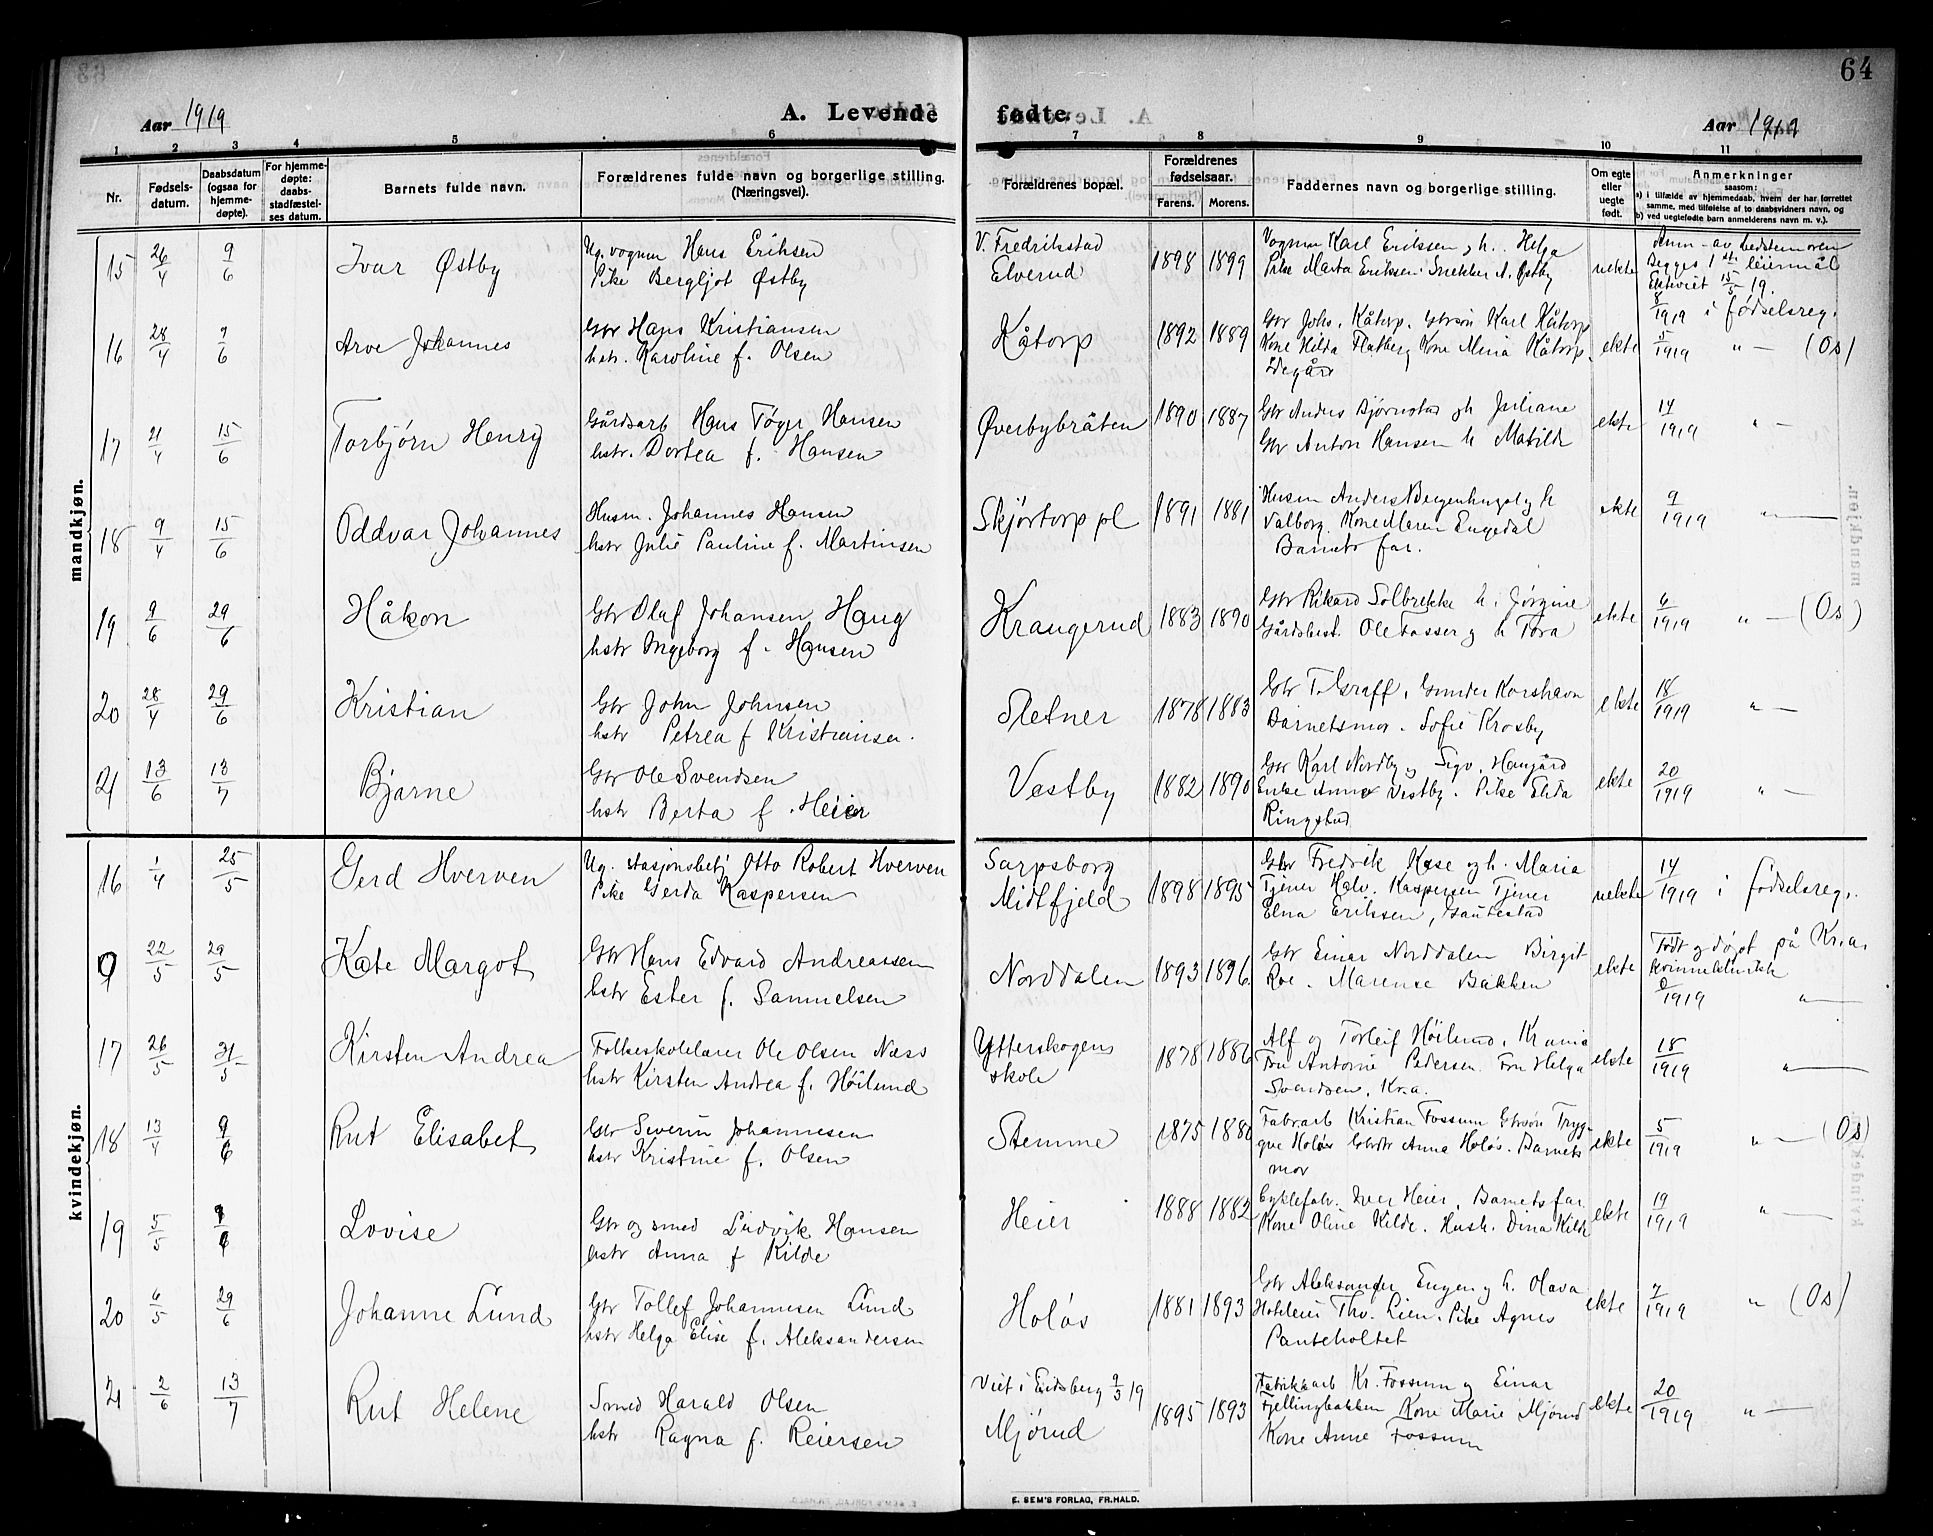 64
Aar 1919
A. Levende fødte.
Aar 1919
1 2 3 4 5 6 7 8 9 10 11
Nr.
Fødsels-datum.
Daabsdatum (ogsaa for hjemme-døpte).
For hjemme-døpte: daabs-stadfæstel-ses datum.
Barnets fulde navn.
Forældrenes fulde navn og borgerlige stilling. (Næringsvei).
Forældrenes bopæl.
Forældrenes fødselsaar.
Farens. Morens.
Faddernes navn og borgerlige stilling.
Om egte eller uegte født.
Anmerkninger
saasom:
a) i tilfælde av hjemmedaab, hvem der har forrettet samme, med tilføielse af to daabsvidners navn, og
b) ved uegtefødte barn anmelderens navn m. v.).
mandkjøn.
15 26/4 9/6 Ivar Østby
Ug. vognm Hans Eriksen
Pike Bergljot Østby
V. Fredrikstad
Elverud
1898 1899
Vognm Karl Eriksen og h. Helga
Pike Marta Eriksen. Snekker A. Østby
uekte
Anm - av bedstemoren
Begges 1ste leiermål
Ekteviet 15/5 19.
8/1919 i fødselsreg.
16 28/4 9/6 Arve Johannes
Gbr Hans Kristiansen
hstr. Karoline f. Olsen
Kåtorp
1892 1889
Gbr Johs. Kåtorp. Gbrsøn Karl Kåtorp
Kone Hilda Flatberg Kone Mina Kåtorp
Ødegård
ekte
5/1919 " — (Os)
17 21/4 15/6 Torbjørn Henry
Gårdsarb Hans Tøger Hansen
hstr. Dortea f. Hansen
Øverbybråten
1890 1887
Gbr Anders Bjørnstad og h Juliane
Gbr Anton Hansen h Matilde
ekte
14/1919 " —
18 9/4 15/6 Oddvar Johannes
Husm. Johannes Hansen
hstr Julie Pauline f. Martinsen
Skjørtorp pl
1891 1881
Husm Anders Bergenhugel og h
Valborg. Kone Maren Engedal
Barnets far.
ekte
9/1919 " —
19 9/6 29/6 Håkon
Gbr Olaf Johansen Haug
hstr Ingeborg f. Hansen
Krangerud
1883 1890
Gbr Rikard Solbrekke h. Jørgine
Gårdsbest. Ole Fosser og h Tora
ekte
6/1919 " — (Os)
20 28/4 29/6 Kristian
Gbr John Johnsen
hstr Petrea f Kristiansen.
Sletner
1878 1883
Gbr T. Graff, Gunder Korshavn
Barnetsmor. Sofie Krosby
ekte
18/1919 " —
21 13/6 13/7 Bjarne
Gbr Ole Svendsen
hstr Berta f. Heier
Vestby
1882 1890
Gbr Karl Nordby og Sigv. Haugård
Enke Anne Vestby. Pike Elida
Ringstad
ekte
20/1919 " —
kvindekjøn.
16 1/4 25/5 Gerd Hverven
Ug. stasjonsbetj Otto Robert Hverven
Pike Gerda Kaspersen
Sarpsborg
Midtfjeld
1898 1895
Gbr Fredrik Kase og h. Maria
Tjener Halv. Kaspersen Tjener
Elna Eriksen, Gautestad
uekte
14/1919 i fødselsreg.
9 22/5 29/5 Kate Margot
Gbr Hans Edvard Andreassen
hstr Ester f. Samuelsen
Norddalen
1893 1896
Gbr Einar Norddalen Birgit
Roe. Marense Bakken
ekte
Født og døpt på Kr.a.
kvinneklinikk
8/1919 " —
17 26/5 31/5 Kirsten Andrea
Folkeskolelærer Ole Olsen Næss
hstr Kirsten Andrea f. Höilund
Ytterskogens
skole
1878 1886
Alf og Torleif Höilund, Krania
Fru Antonie Pedersen. Fru Helga
Svendsen, Kr.a.
ekte
18/1919 " —
18 13/4 9/6 Rut Elisabet
Gbr Severin Johannesen
hstr Kristine f. Olsen
Stemme
1875 1880
Fabrarb Kristian Fossum Gbrsøn Tryg-
gve Holøs Gbrdtr Anna Holøs. Barnets
mor
ekte
5/1919 " — (Os)
19 5/5 9/6 Lovise
Gbr og smed Ludvik Hansen
hstr Anna f Kilde
Heier
1888 1882
Cyklefabr. Iver Heier, Barnets far
Kone Oline Kilde. Hush. Dina Kilde
ekte
19/1919 " —
20 6/5 29/6 Johanne Lund
Gbr Tollef Johannesen Lund
hstr Helga Elise f. Aleksandersen
Holøs
1881 1893
Gbr Aleksander Engen og h. Olava
Thv. Lien. Pike Agnes
Panteholtet
ekte
7/1919 " (Os)
21 2/6 13/7 Rut Helene
Smed Harald Olsen
hstr Ragna f. Reiersen
Viet i Eidsberg 9/3 19
Mjørud
1895 1893
Fabrikkarb Kr. Fossum og Einar
Fjellingbakken Kone Marie Mjørud
Kone Anne Fossum
ekte
20/1919 " —
E. SEM'S FORLAG, FR.HALD.